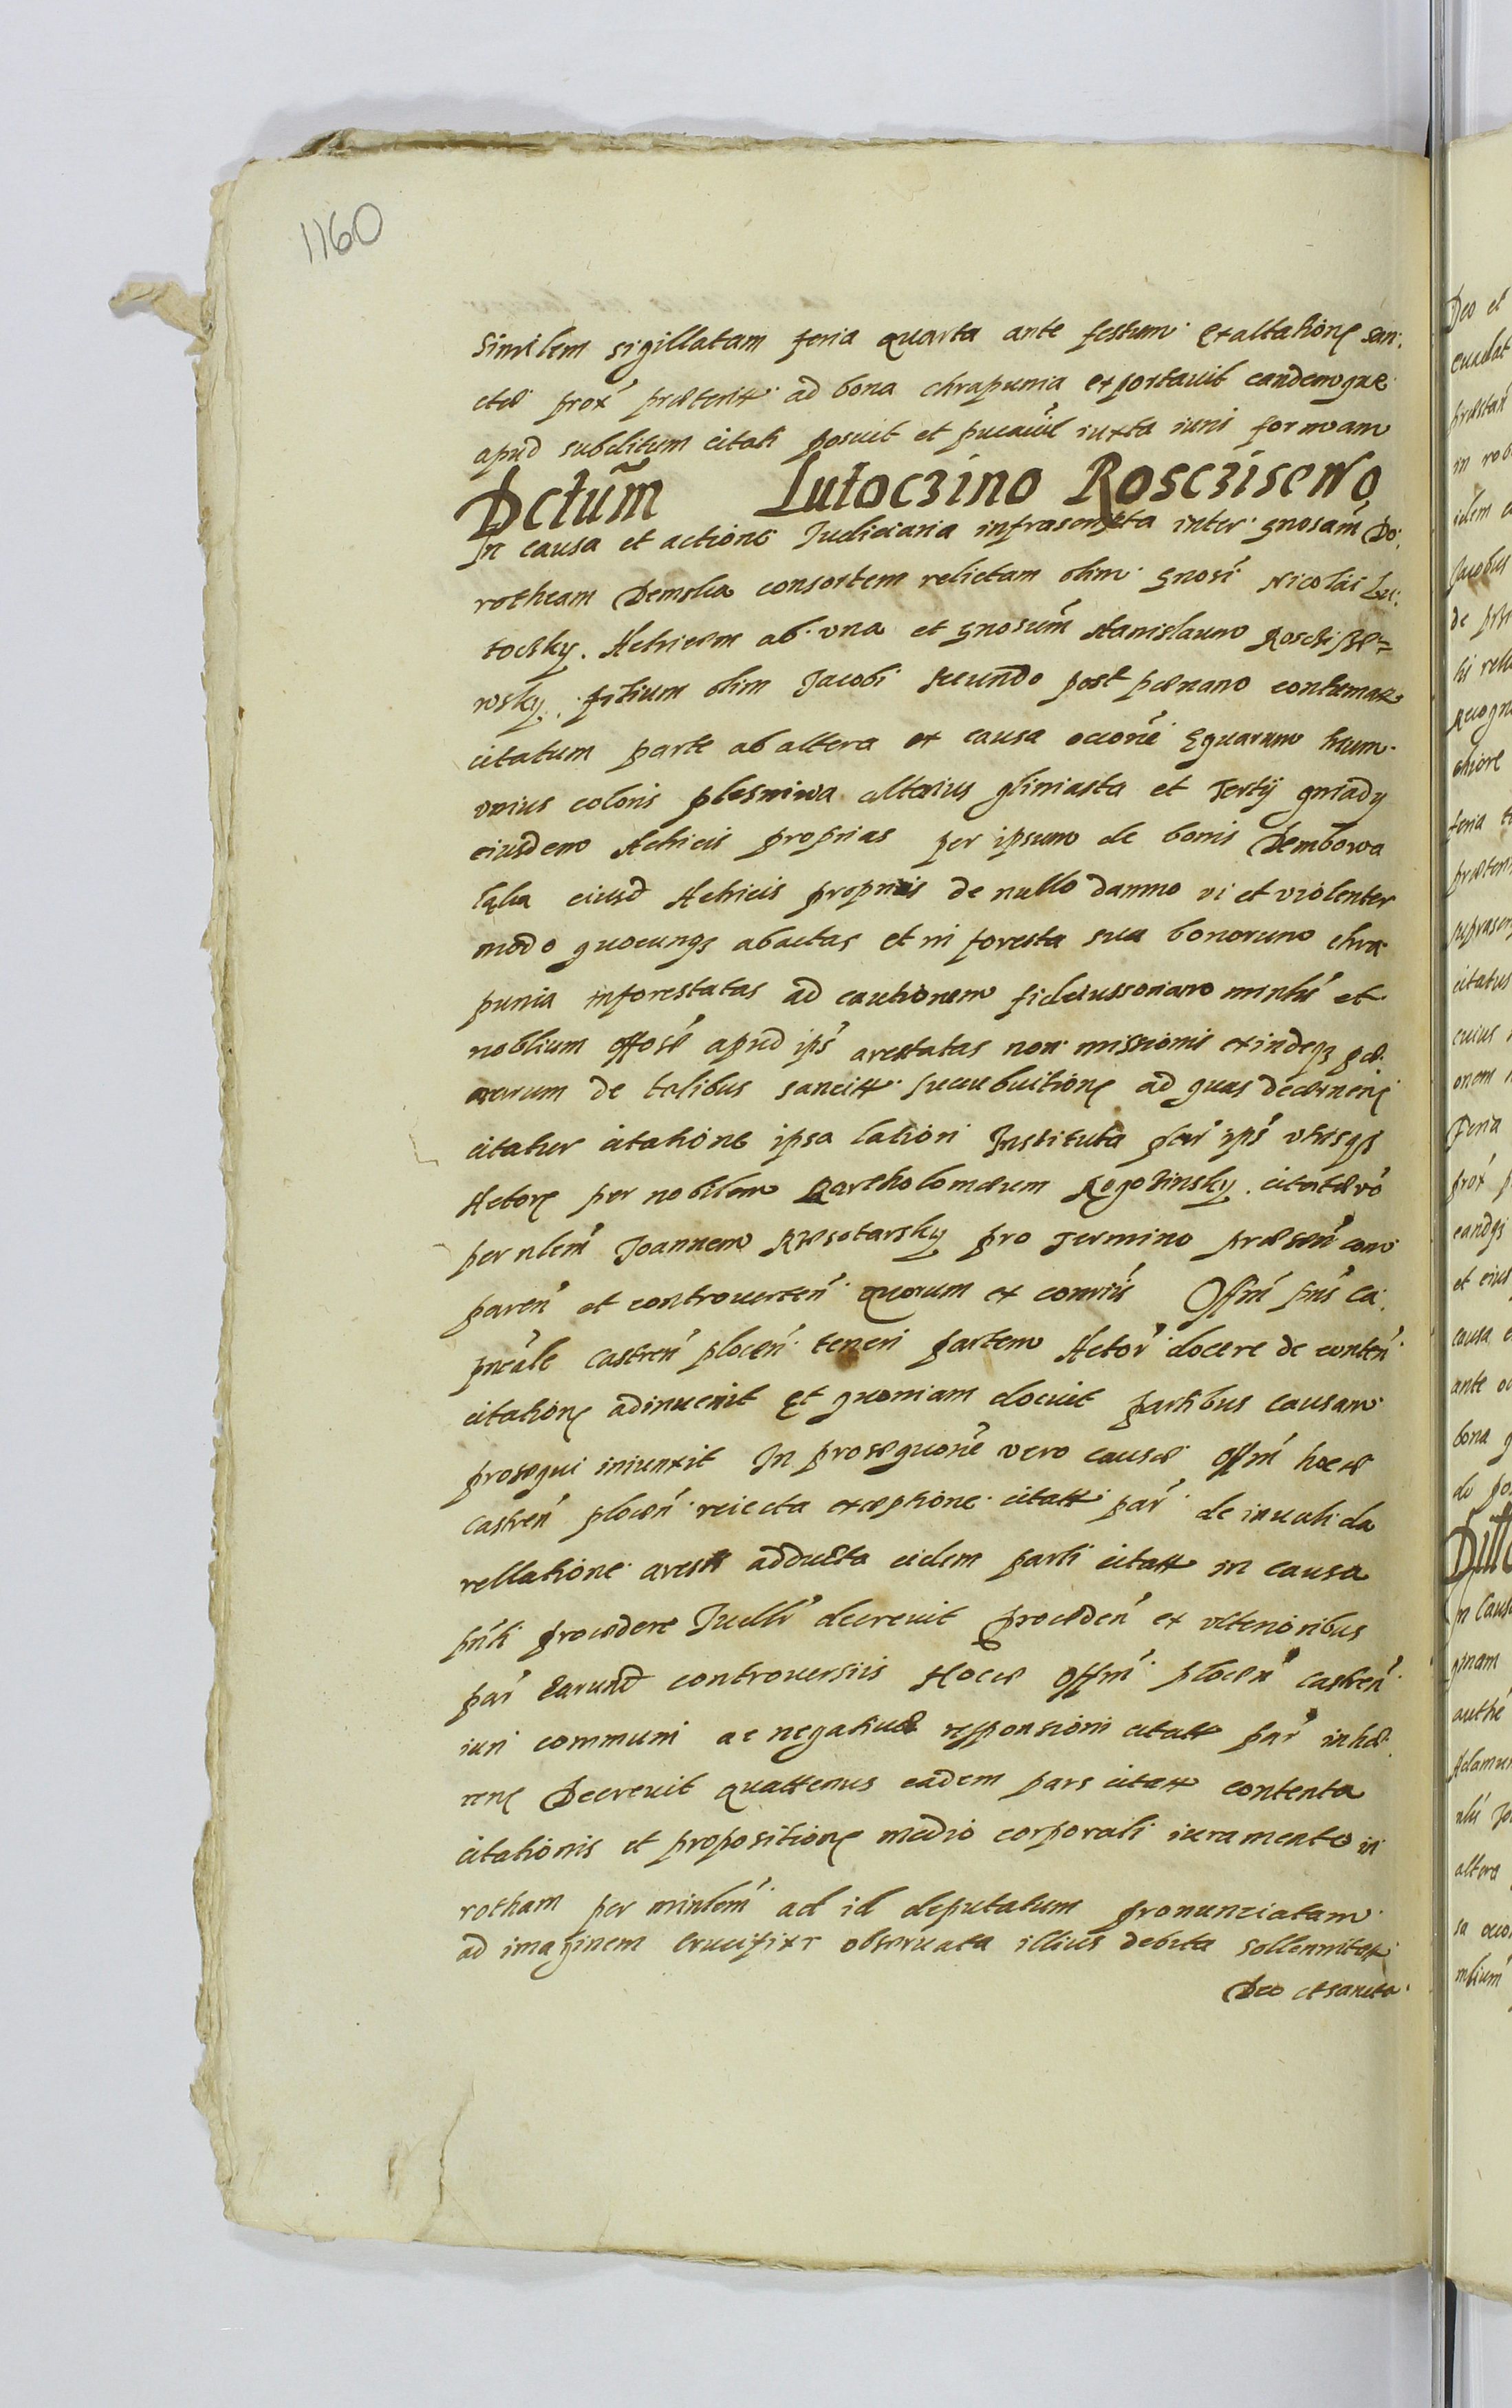 1160
similem sigillatam feria quarta ante festum Exaltationis san:
ctæ prox præteritt ad bona chrapunia exportauit eandemque
apud subditum citati posuit et pucauit iuxta iuris formam
Dctum Lutoczino Roscziseno
In causa et actione Judiciaria infrascripta inter gnosam Do:
rotheam Demska consortem relictam olim gnosi Nicolai Lu:
toczky. Actricem ab una et gnosum Stanislaum Roscisze=
wsky filium olim Jacobi secundo post pænam contumatt
citatum parte ab altera ex causa occone Equarum trium
vnius coloris plesniwa alterius gliniasta et Tertij gniady
eiusdem Actricis proprias per ipsum de bonis Dembowa
laka eiusd Actricis proprijs de nullo damno vi et violenter
modo quocunqs abactas et in foresta sua bonorum chra
punia inforestatas ad cautionem fideiussoriam minlis et
noblium offose apud ips arestatas non missionis exindeqs pæ
narum de talibus sancitt succubuitionis ad quas decernenc
citatur citatione ipsa latiori Instituta par ips vtrisqs
Actoris per nobilem Bartholomæum Rogozinsky citatæ vo
per nlem Joannem Rzesotarsky pro Termino præsen com
paren et controuerten quorum ex contrius Offm pns Ca
pneale Castren plocen teneri partem Actor docere de conten
citationis adinuenit Et quoniam docuit partibus causam
prosequi iniunxit In prosequone vero causæ offm hocce
Castren plocen reiecta exceptione citatt par de inualida
rellatione aresti adducta eidem parti citatt in causa
pnti procedere Judlr decreuit Proceden ex vlterioribus
par earund controuersiis Hocce offm plocen castren
iuri communi ac negatiuæ responsioni citatt par inhæ
renc Decreuit quattenus eadem pars citatt contenta
citationis et propositionis medio corporali iuramento in
rotham per minlem ad id deputatum pronunciatam
ad imaginem Crucifixi obseruata illius debita sollennitatt
Deo et sancta